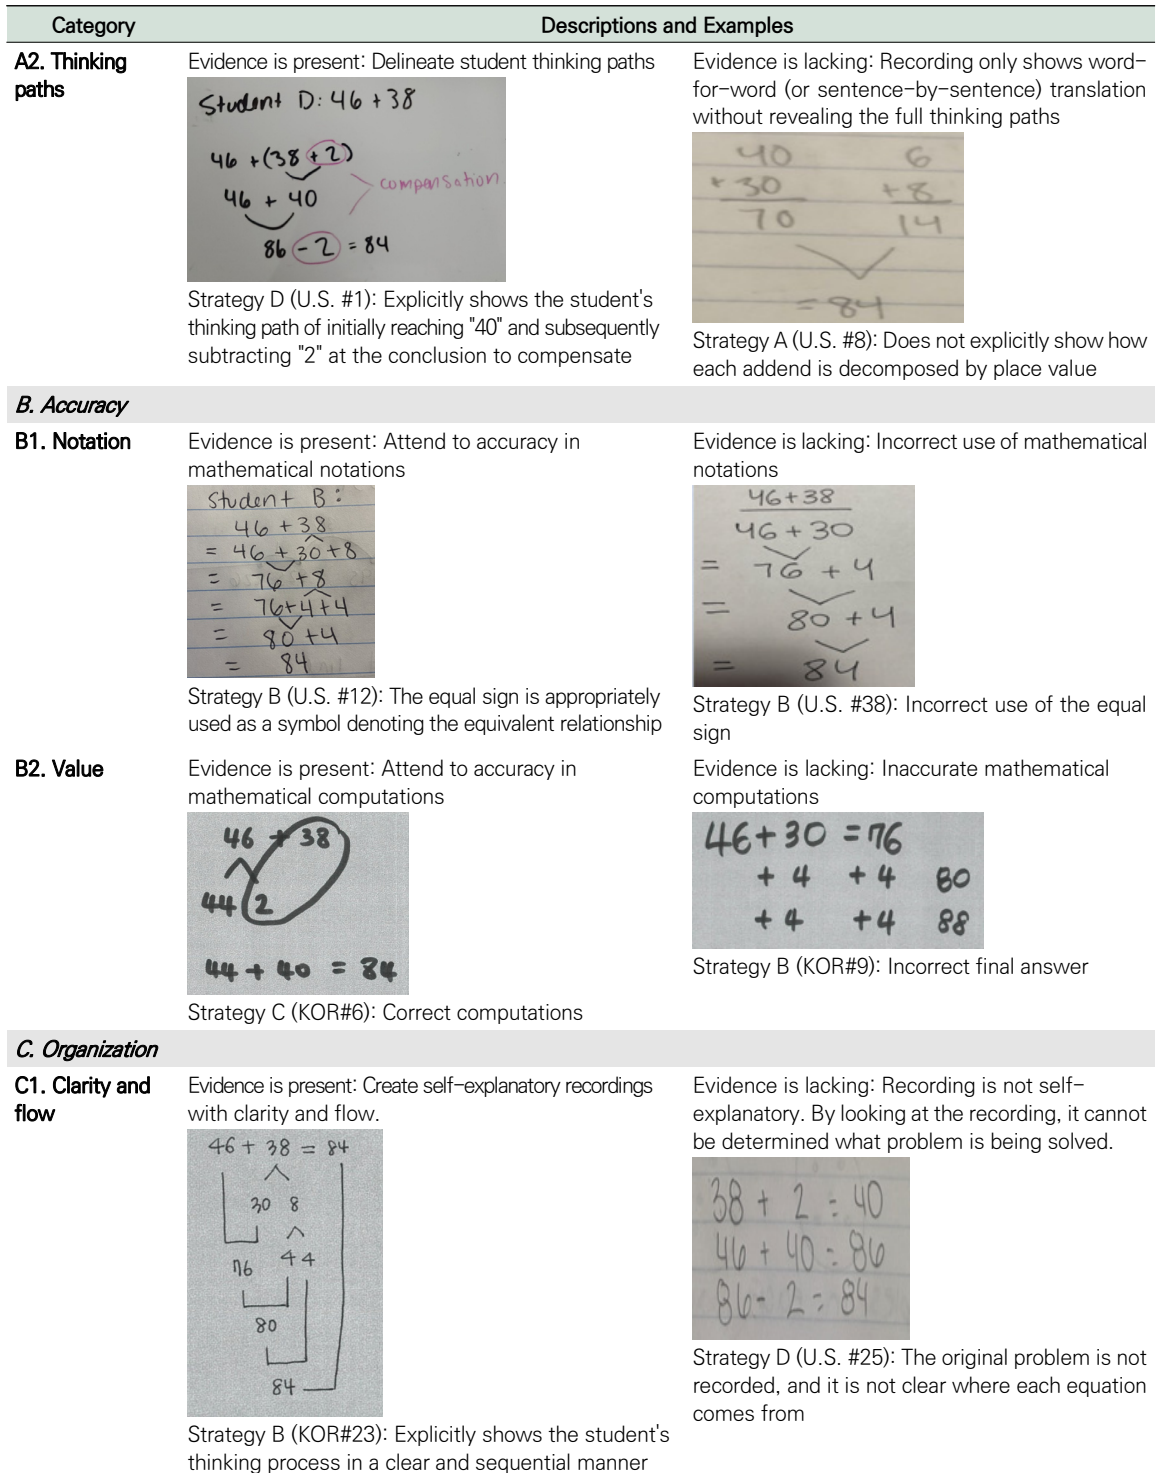 Category
Descriptions and Examples
A2. Thinking
paths
Evidence is present: Delineate student thinking paths
Student D: 46 + 38
46 + (38 + 2)
46 + 40
compensation
86 - 2 = 84
Strategy D (U.S. #1): Explicitly shows the student's
thinking path of initially reaching "40" and subsequently
subtracting "2" at the conclusion to compensate
Evidence is lacking: Recording only shows word-
for-word (or sentence-by-sentence) translation
without revealing the full thinking paths
40 6
+ 30 + 8
70 14
= 84
Strategy A (U.S. #8): Does not explicitly show how
each addend is decomposed by place value
B. Accuracy
B1. Notation
Evidence is present: Attend to accuracy in
mathematical notations
Student B:
46 + 38
= 46 + 30 + 8
= 76 + 8
= 76+4+4
= 80 + 4
= 84
Strategy B (U.S. #12): The equal sign is appropriately
used as a symbol denoting the equivalent relationship
Evidence is lacking: Incorrect use of mathematical
notations
46+38
46 + 30
= 76 + 4
= 80 + 4
= 84
Strategy B (U.S. #38): Incorrect use of the equal
sign
B2. Value
Evidence is present: Attend to accuracy in
mathematical computations
46 + 38
44 2
44 + 40 = 84
Strategy C (KOR#6): Correct computations
Evidence is lacking: Inaccurate mathematical
computations
46+30 = 76
+ 4 + 4 80
+ 4 + 4 88
Strategy B (KOR#9): Incorrect final answer
C. Organization
C1. Clarity and
flow
Evidence is present: Create self-explanatory recordings
with clarity and flow.
46 + 38 = 84
30 8
76 4 4
80
84
Strategy B (KOR#23): Explicitly shows the student's
thinking process in a clear and sequential manner
Evidence is lacking: Recording is not self-
explanatory. By looking at the recording, it cannot
be determined what problem is being solved.
38 + 2 = 40
46 + 40 = 86
86 - 2 = 84
Strategy D (U.S. #25): The original problem is not
recorded, and it is not clear where each equation
comes from